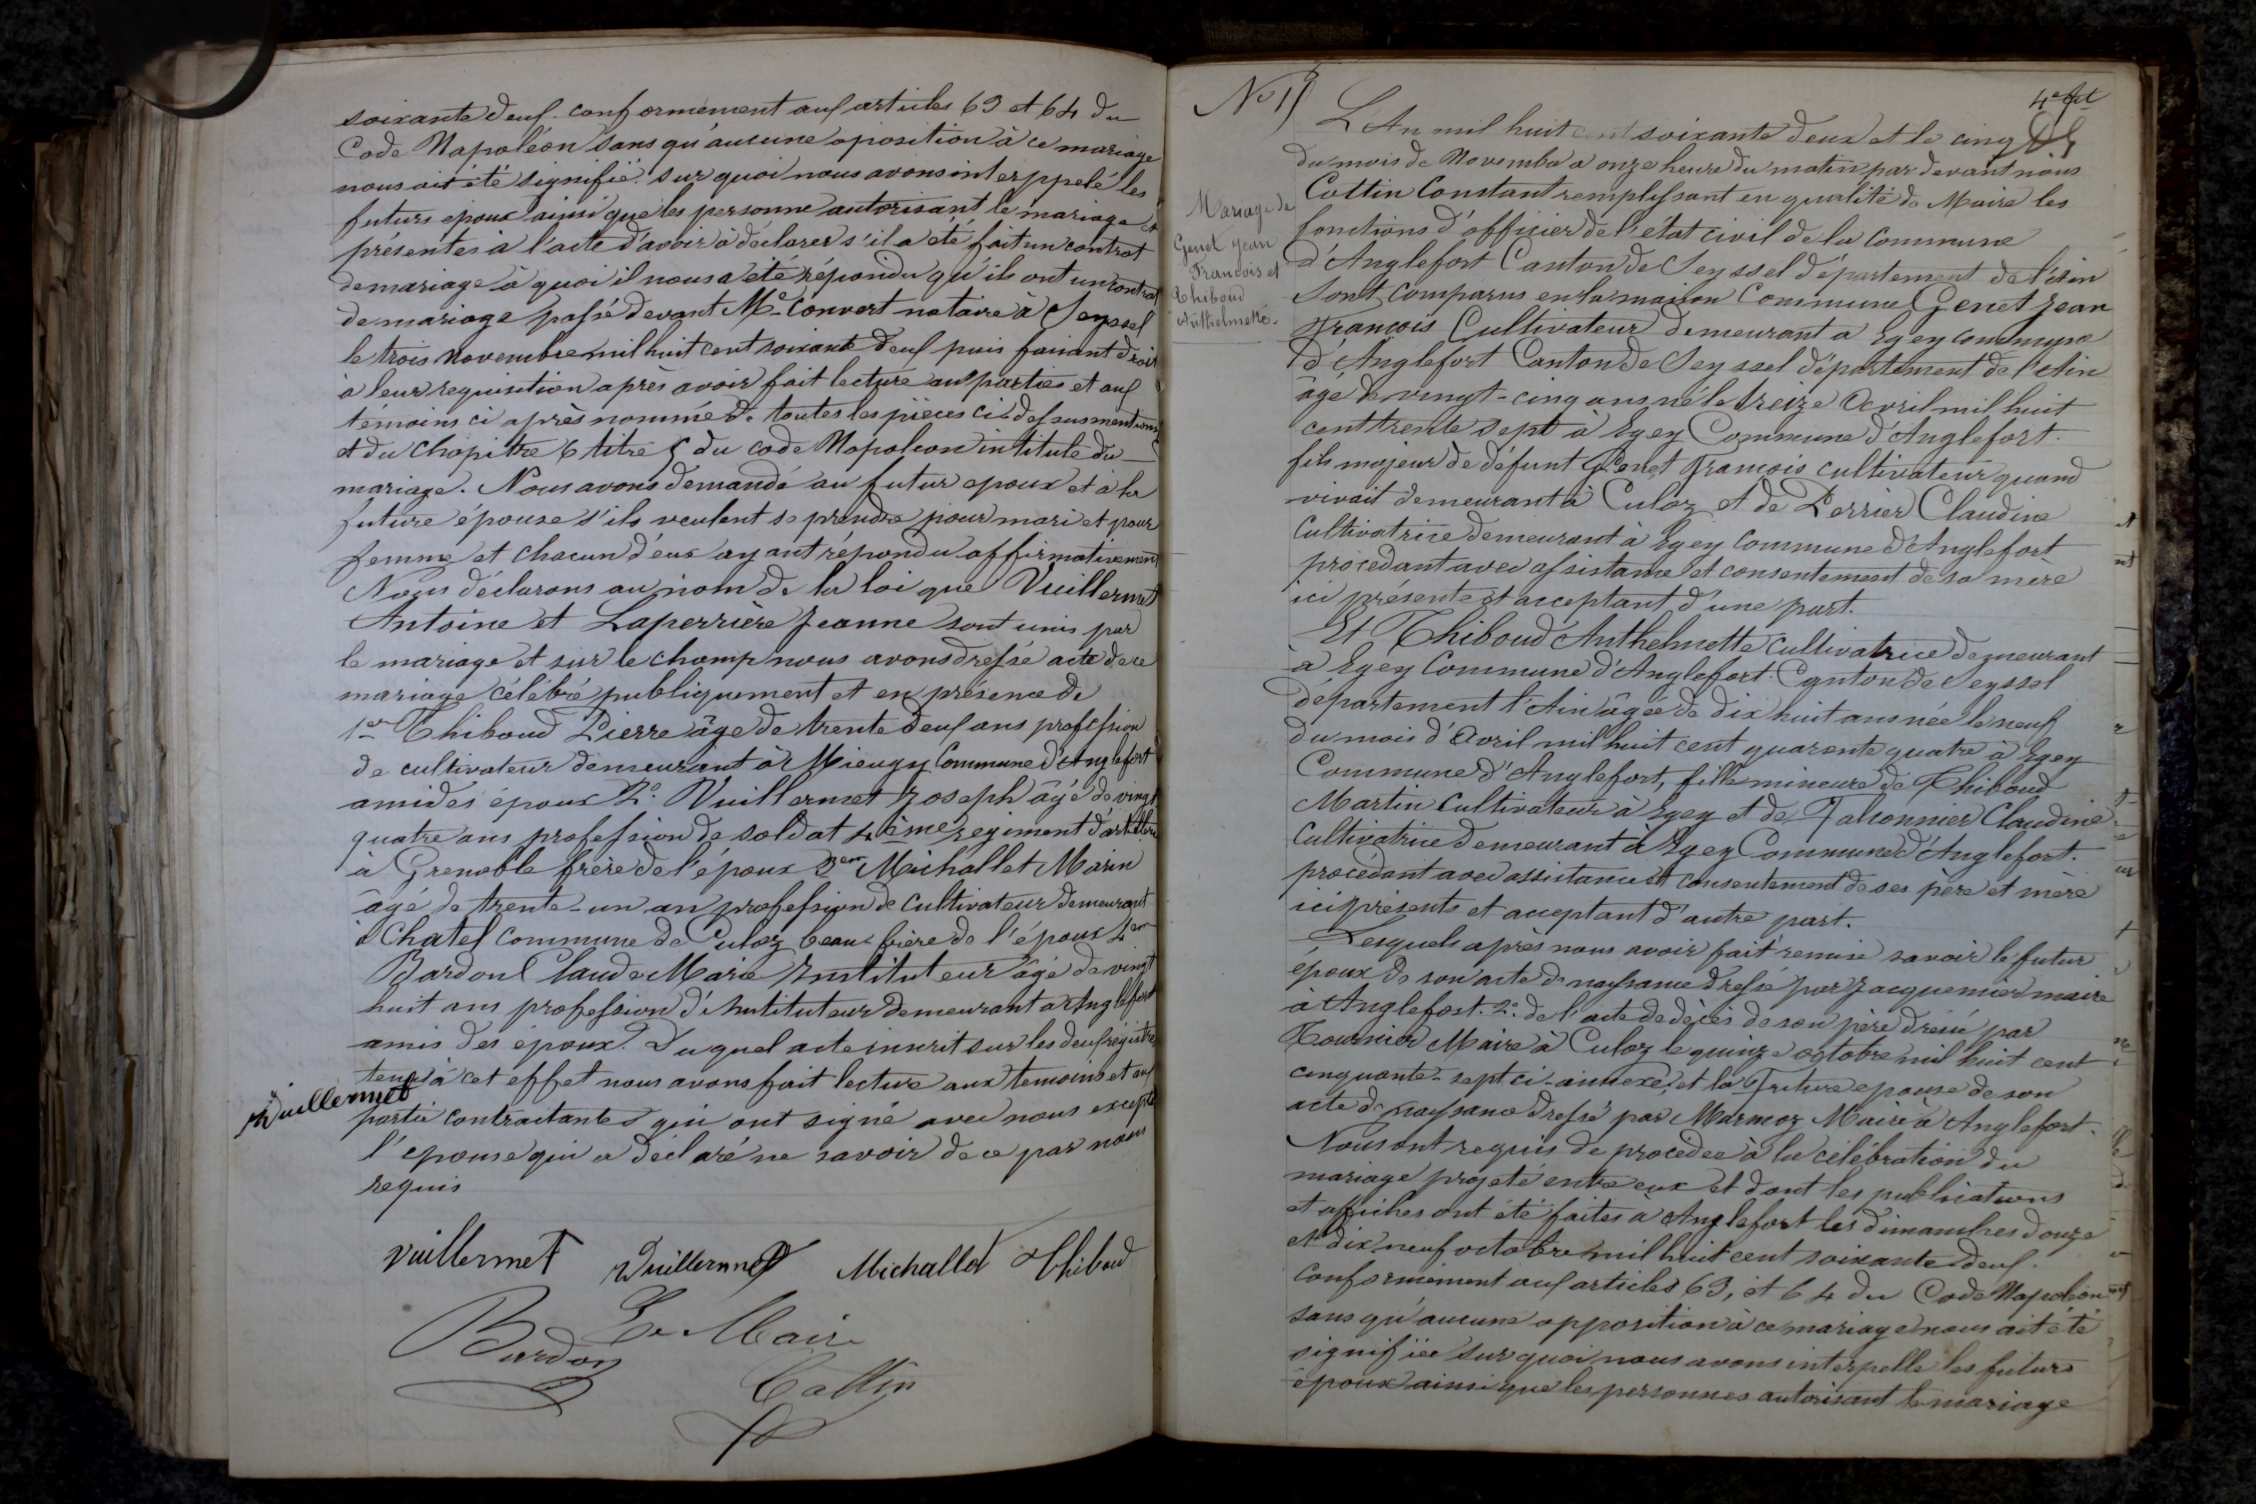 soixante deux. conformément aux articles 63 et 64 du
Code Napoléon sans qu'aucune oposition à ce mariage
nous ait été signifié. sur quoi nous avons interppelé les
futurs époux ainsi que les personne autorisant le mariage
présentes à l'acte d'avoir à déclarer s'il a été fait un contrat
de mariage à quoi il nous a été répondu qu'ils ont un contrat
de mariage passé devant Me Convert notaire à Seyssel
le trois novembre mil huit cent soixante deux puis faisant droit
à leur requisition après avoir fait lecture aux parties et aux
témoins ci après nommé de toutes les pièces ci-dessus mentionné
et du chapitre 6 titre 5 du code Napoleon intitule du
mariage. Nous avons demandé au futur epoux et à la
future épouse s'ils veulent se prendre pour mari et pour
femme et chacun d'eux ayant répondu affirmativement
Nous déclarons au nom de la loi que Vuillermet
Antoine et Laperrière Jeanne sont unis par
le mariage et sur le champ nous avons dressé acte de ce
mariage célébré publiquement et en présence de
1er Thiboud Pierre âge de trente deux ans profession
de cultivateur demeurant à Mieugy Commune d'Anglefort
ami des époux 2o. Vuillermet Joseph âgé de vingt
quatre ans profession de soldat 4ème regiment d'artillerie
à Grenoble frère de l'époux 3em Michallet Marin
âgé de trente-un an profession de cultivateur demeurant
à Chatel commune de Culoz beau frère de l'époux 4em
Bardon Claude Marie Instituteur âgé de vingt
huit ans profession d'instituteur demeurant a Anglefort
amis des époux. Du quel acte inscrit sur les deux registre
tenus à cet effet nous avons fait lecture aux temoins et aux
Vuillermet
partie contractantes qui ont signé avec nous excepté
l'epouse qui a déclaré ne savoir de ce par nous
requis
Vuillermet Vuillermet Michallet Thiboud
Bardon Le Maire
Cottin
No 15
4e fet
Mariage de
Genet Jean
François et
Thiboud
Anthelmette.
L'An mil huit cent soixante deux et le cinq
du mois de Novembre a onze heure du matin par devant nous
Cottin Constant remplissant en qualité de Maire les
fonctions d'officier de l'état civil de la Commune
d'Anglefort Canton de Seyssel département de l'Ain
Sont comparus en la maison Commune Genet Jean
François Cultivateur demeurant a Egey commune
d'Anglefort Canton de Seyssel département de l'Ain
âgé de vingt-cinq ans né le treize Avril mil huit
cent trente sept à Egey Commune d'Anglefort.
fils majeur de défunt Genet François cultivateur quand
vivait demeurant à Culoz et de Perrier Claudine
Cultivatrice demeurant à Egey Commune d'Anglefort
procédant avec assistance et consentement de sa mère
ici présente et acceptant d'une part.
Et Thiboud Anthelmette Cultivatrice demeurant
à Egey Commune d'Anglefort. Canton de Seyssel
département l'Ain âgée de dix huit ans née le neuf
du mois d'Avril mil huit cent quarente quatre à Egey
Commune d'Anglefort, fille mineure de Thiboud
Martin Cultivateur à Egey et de Falconnier Claudine
Cultivatrice demeurant à Egey Commune d'Anglefort.
procedant avec assistance et consentement de ses père et mère
ici présents et acceptant d'autre part.
Lesquels après nous avoir fait remise savoir le futur
époux de son acte de naysance dressé par Jacquemier maire
à Anglefort. 2o. de l'acte de décès de son père dréssé par
Tournier Maire à Culoz le quinze octobre mil huit cent
cinquante-sept ci-annexé, et la Future epouse de son
acte de naysance dressé par Marmoz Maire à Anglefort.
Nous ont requis de proceder à la célébration du
mariage projeté entre eux et dont les publications
et affiches ont été faites à Anglefort les dimanches douze
et dix neuf octobre mil huit cent soixante deux.
conformément aux articles 63, et 64 du Code Napoléon
sans qu'aucune opposition à ce mariage nous ait été
signifiée sur quoi nous avons interpellé les futurs
époux ainsi que les personnes autorisant le mariage